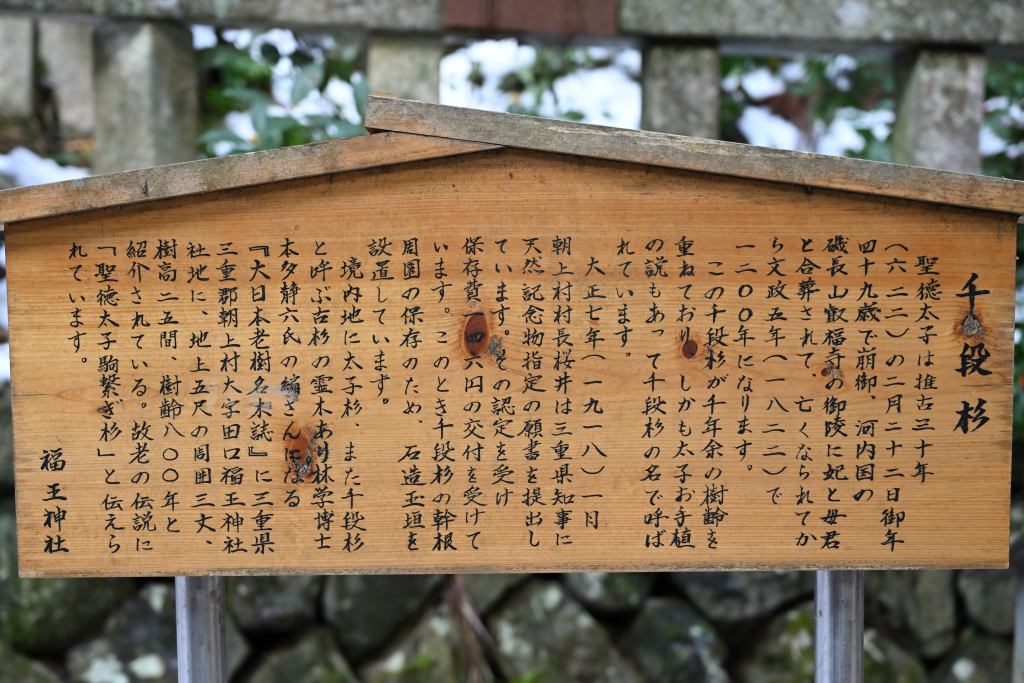 千段杉
聖徳太子は推古三十年
(六二二)の二月二十二日御年
四十九歳で崩御、河内国の
磯長山叡福寺の御陵に妃と母君
と合葬されて、亡くなられてか
ら文政五年(一八二二)で
一二〇〇年になります。
この千段杉が千年余の樹齢を
重ねており、しかも太子お手植
の説もあって千段杉の名で呼ば
れています。
大正七年(一九一八)一月
朝上村村長桜井は三重県知事に
天然記念物指定の願書を提出し
ています。その認定を受け
保存費一四六円の交付を受けて
います。このとき千段杉の幹根
周囲の保存のため、石造玉垣を
設置しています。
境内地に太子杉、また千段杉
と呼ぶ古杉の霊木あり林学博士
本多静六氏の編さんはる
『大日本老樹名木誌』に三重県
三重郡朝上村大字田口福王神社
社地に、地上五尺の周囲三丈、
樹高二五間、樹齢八〇〇年と
紹介されている。故老の伝説に
「聖徳太子駒繋ぎ杉」と伝えら
れています。
福王神社